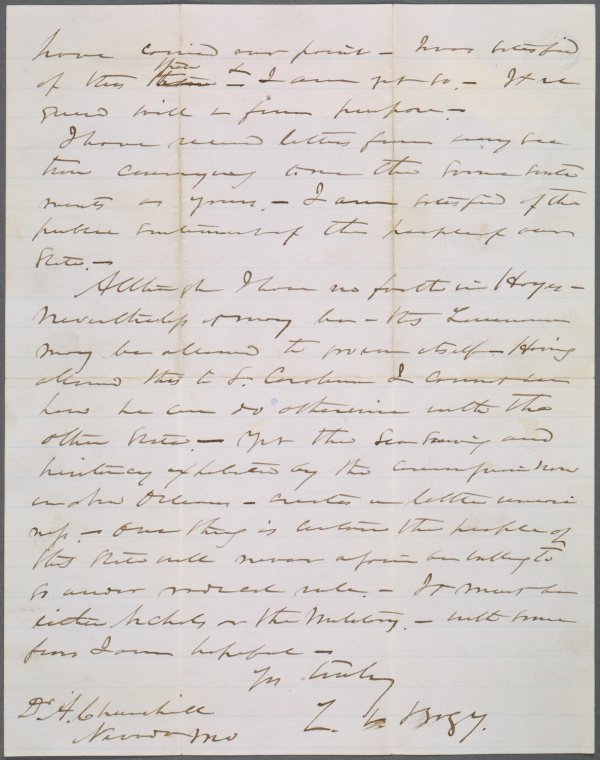 have carried our point – I was satisfied
of this then & I am yet so. – It re
quires will & firm purpose. –
I have received letters from every sec
tion conveying to me the same senti
ments as yours. – I am satisfied of the
public sentiment of the people of our
State. –
Although I have no faith in Hayes –
nevertheless it may be – that Louisiana
may be allowed to govern itself – Having
allowed this to S. Carolina I cannot see
how he can do otherwise with the
other State. – Yet the and
hesitancy exhibited by the commission now
in New Orleans – creates a little uneasi
ness. – One thing is certain the people of
this State will never again be willing to
go under radical rule. – It must be
either Nichols or the Military. – with some
fears I am hopeful –
Yrs truly
L. V. Bogy.
Dr. A. Churchill
Nevada Mo